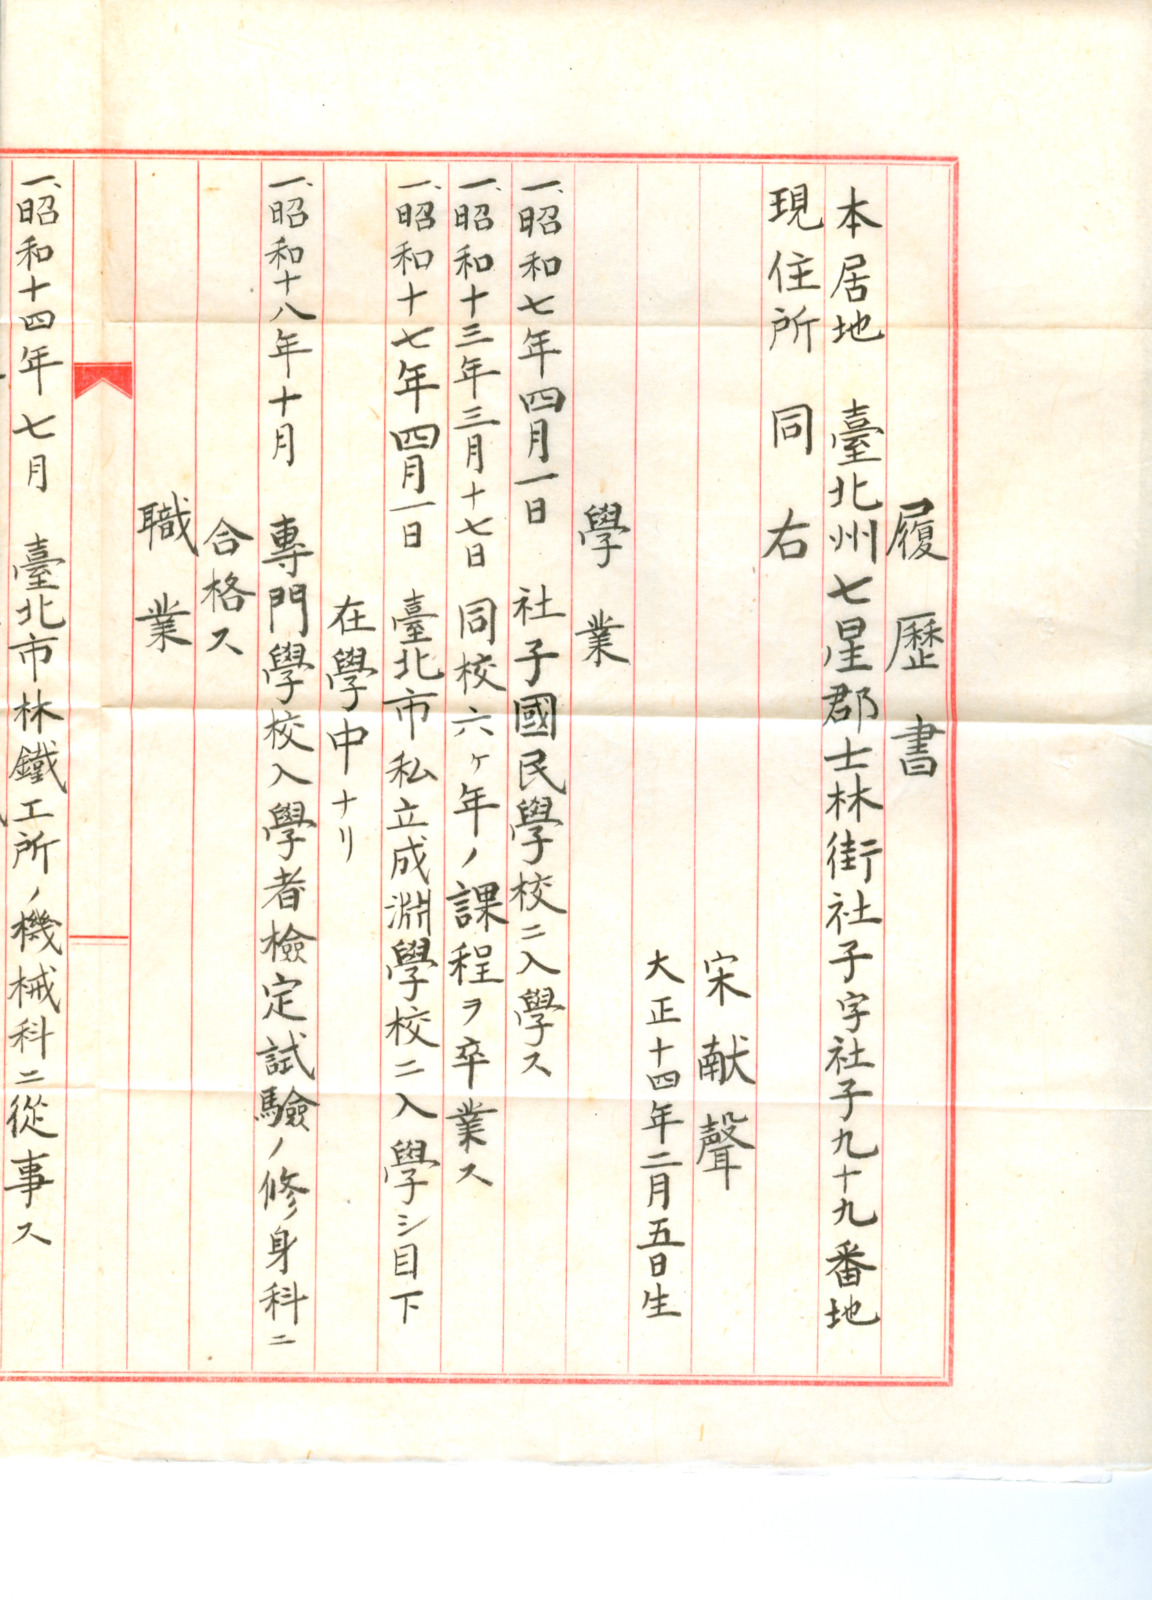 履歷書
本居地　臺北州七星郡士林街社子字社子九十九番地
現住所　同右
宋献聲
大正十四年二月五日生
學業
一、昭和七年四月一日　社子國民學校ニ入學ス
一、昭和十三年三月十七日　同校六ヶ年ノ課程ヲ卒業ス
一、昭和十七年四月一日　臺北市私立成淵學校ニ入學シ目下
在學中ナリ
一、昭和十八年十月　專門學校入學者檢定試驗ノ修身科ニ
合格ス
職業
一、昭和十四年七月　臺北市林鐵工所ノ機械科ニ從事ス